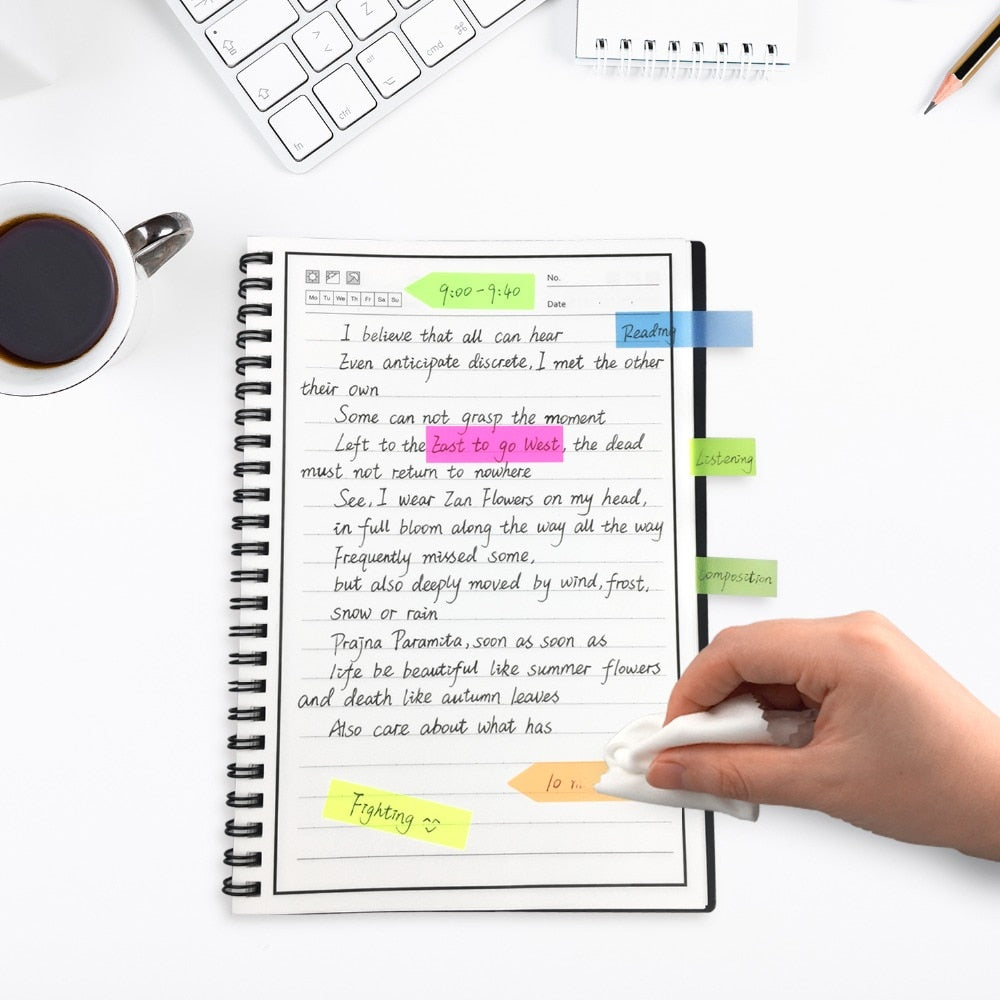 Z
alt
cmd
⌘
ctrl
fn
9:00-9:40
No.
Mo Tu We Th Fr Sa Su
Date
I believe that all can hear
Reading
Even anticipate discrete, I met the other
their own
Some can not grasp the moment
Left to the East to go West, the dead
must not return to nowhere
Listening
See, I wear Zan Flowers on my head,
in full bloom along the way all the way
Frequently missed some,
but also deeply moved by wind, frost,
Composition
snow or rain
Prajna Paramita, soon as soon as
life be beautiful like summer flowers
and death like autumn leaves
Also care about what has
10
Fighting